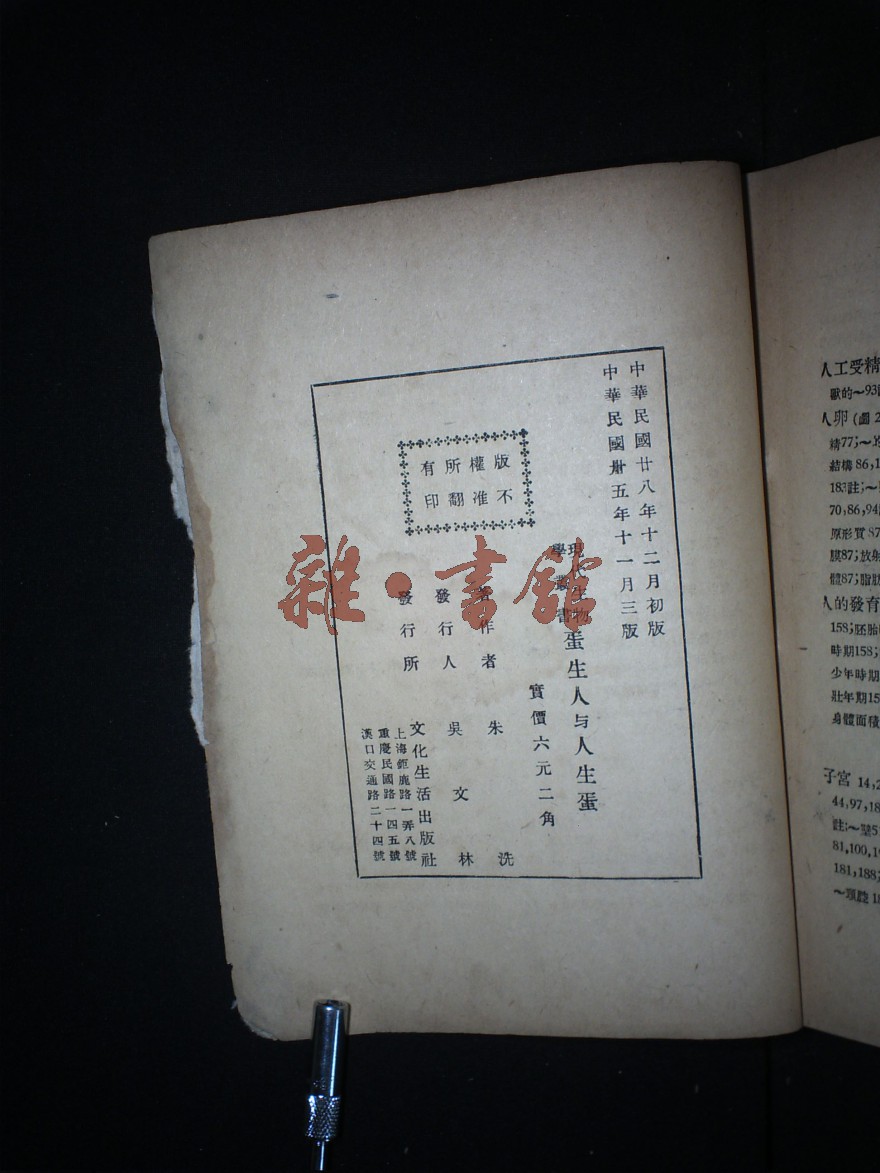 中華民國廿八年十二月初版
中華民國卅五年十一月三版
現代生物
學叢書
蛋生人与人生蛋
實價六元二角
著作者 朱 洗
發行人 吳文林
發行所 文化生活出版社
上海鉅鹿路一弄八號
重慶民國路一四五號
漢口交通路二十四號
版權所有
不准翻印
雜·書館
人工受精
獸的～93
人卵(圖2
精77;～
結構86,1
183註;～
70,86,94
原形質87
膜87;放射
體87;脂肪
人的發育
158;胚胎
時期158;
少年時期
壯年期15
身體面積
子宮 14,2
44,97,18
註;～壁5
81,100,1
181,188;
～頸腔 18